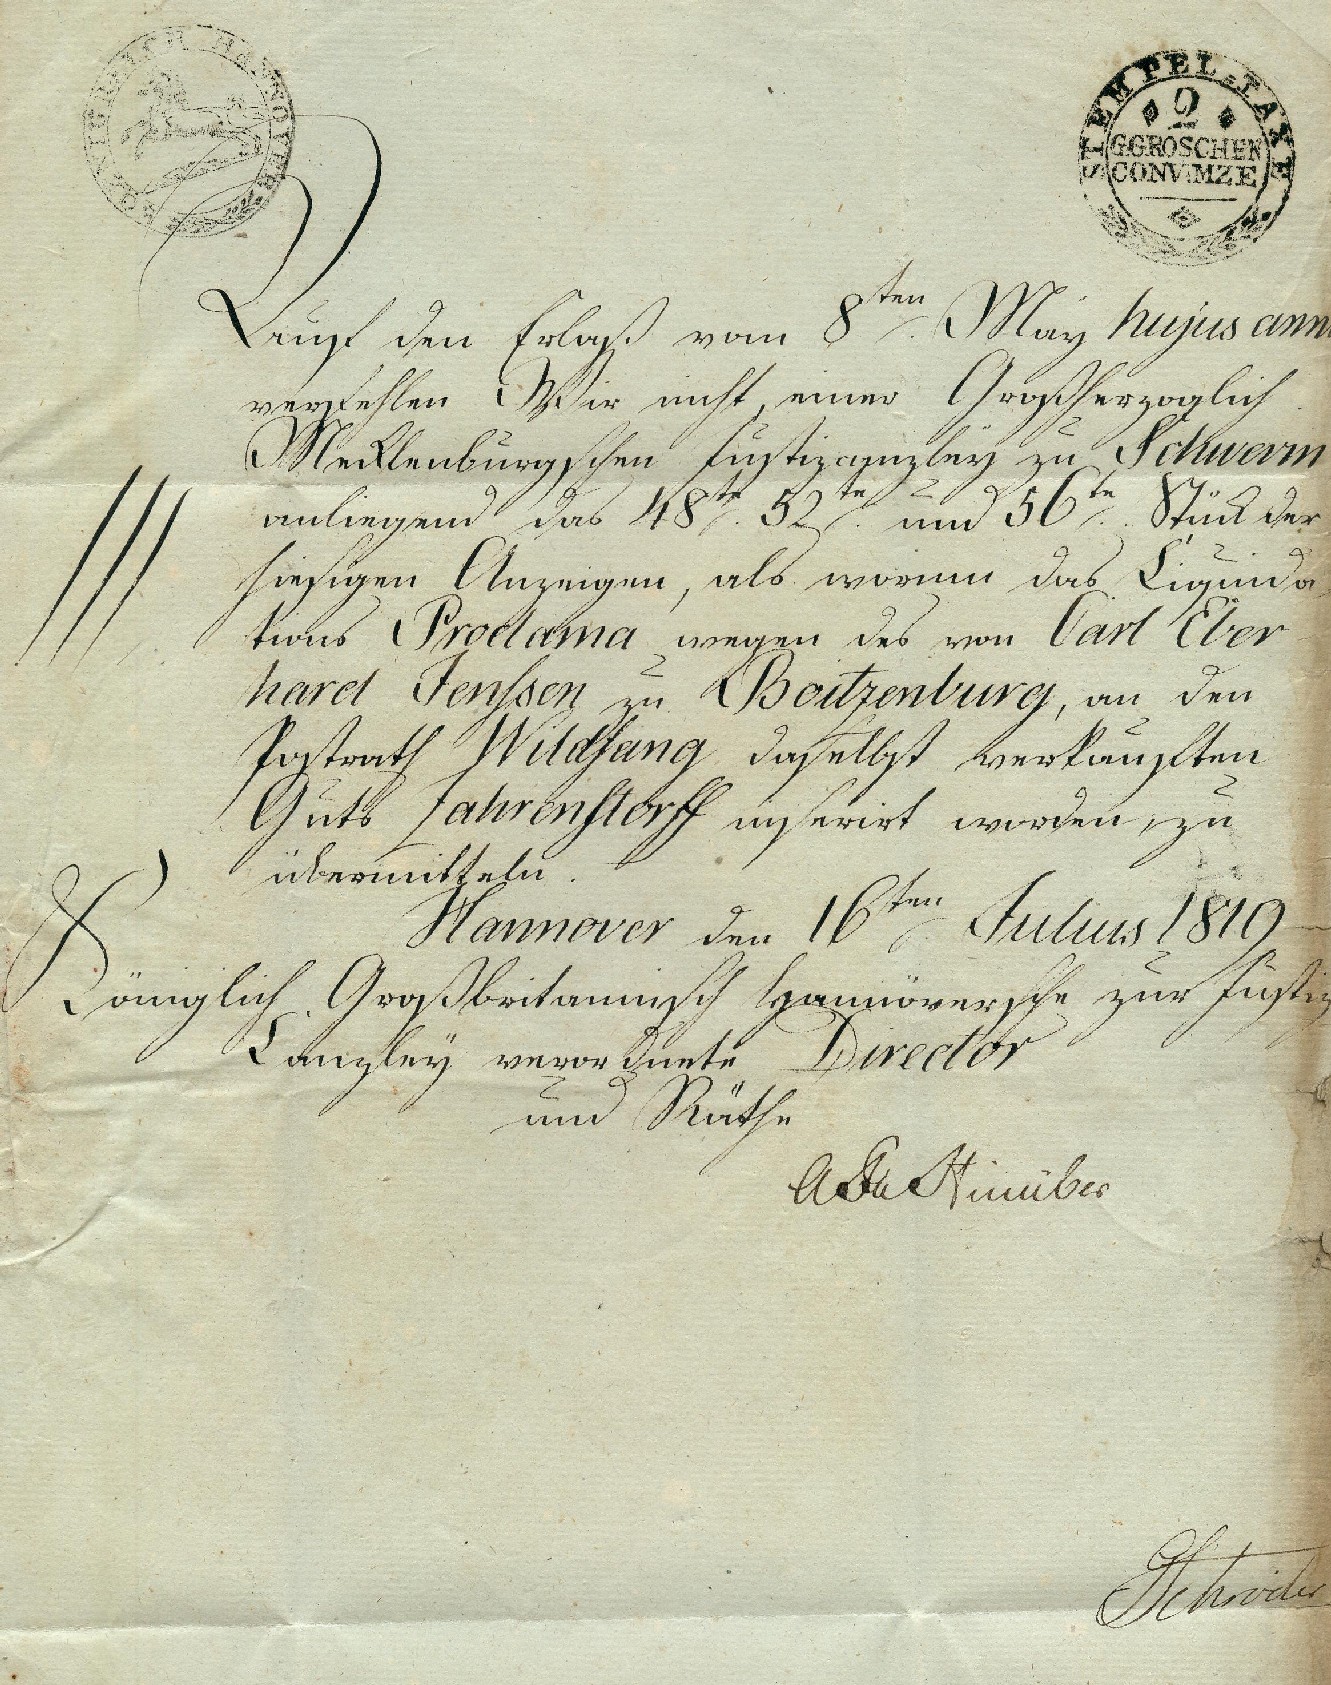 KÖNIGREICH HANNOVER
STEMPEL-TAXE
2
G.GROSCHEN
CONV:MZE
Nach den Erlaß vom 8ten May hujus anni
verfehlen Wir nicht, einer Großherzoglich
Mecklenburgschen Justizcanzley zu Schwerin
anliegend das 48te 52te und 56te Stück der
hiesigen Anzeigen, als worinn das Liquida
tions Proclama wegen des von Carl Eber
hard Jenssen zu Boitzenburg, an den
Postrath Wildfang daselbst verkauften
Guts Jahrenstorff inserirt worden, zu
übermitteln.
Hannover den 16ten Julius 1819
Königlich Großbritannisch Hannöversche zur Justiz
Canzley verordnete Director
und Räthe
Hinüber
Schröder